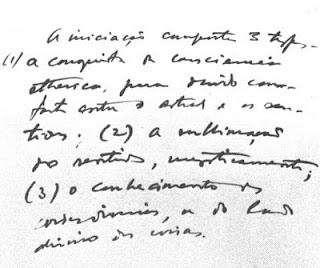 A iniciação comporta 3 typos -
(1) a conquista da consciencia
etherica, para
entre o astral e os sen-
tidos; (2) a sublimação
do sentido, mysticamente;
(3) o conhecimento das
correspondencias, e do lado
divino das coisas.